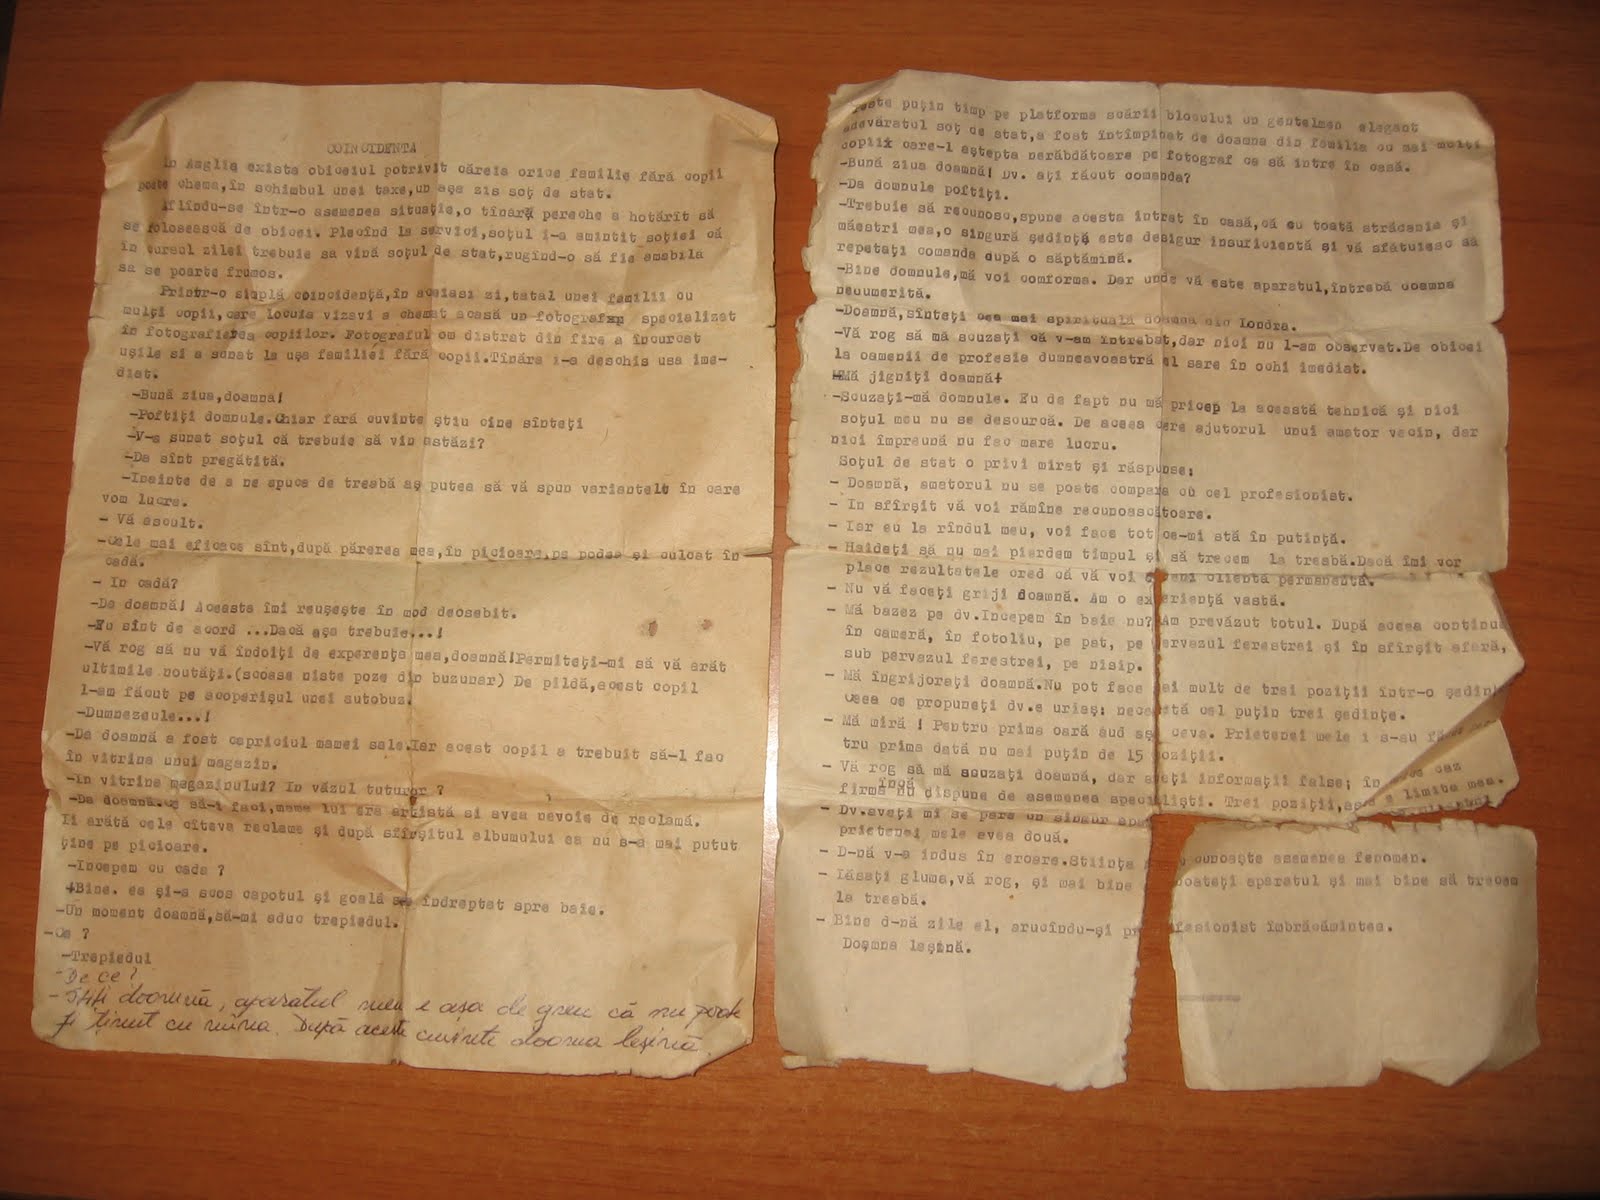 COINCIDENTA
In Anglia exista obiceiul potrivit căreia orice familie fără copii
poate chema,în schimbul unei taxe,un așa zis soț de stat.
Aflîndu-se într-o asemenea situație,o tînără pereche a hotărît să
se folosească de obicei. Plecînd la servici,soțul i-a amintit soției că
în cursul zilei trebuie sa vină soțul de stat,rugînd-o să fie amabila
sa se poarte frumos.
Printr-o simplă coincidență,în aceiasi zi,tatal unei familii cu
mulți copii,care locuia vizavi a chemat acasă un fotograf specializat
în fotografierea copiilor. Fotograful om distrat din fire a incurcat
ușile si a sunat la ușa familiei fără copii.Tînăra i-a deschis usa ime-
diat.
-Bună ziua,doamnă!
-Poftiți domnule.Chiar fară cuvinte știu cine sînteți
-V-a sunat soțul că trebuie să vin astăzi?
-Da sînt pregătită.
-Inainte de a ne apuca de treabă aș putea să vă spun variantele în care
vom lucra.
- Vă ascult.
-Cele mai eficace sînt,după părerea mea,în picioare,pe podea și culcat în
cadă.
- In cadă?
-Da doamnă! Aceasta îmi reușește în mod deosebit.
-Eu sînt de acord ...Dacă așa trebuie...!
-Vă rog să nu vă îndoiți de experența mea,doamnă!Permiteți-mi să vă arăt
ultimile noutăți.(scoase niste poze din buzunar) De pildă,acest copil
l-am făcut pe acoperișul unei autobuz.
-Dumnezeule...!
-Da doamnă a fost capriciul mamei sale.Iar acest copil a trebuit să-l fac
în vitrina unui magazin.
-In vitrina magazinului? In văzul tuturor ?
-Da doamnă.ce să-i faci,mama lui era artistă si avea nevoie de reclamă.
Ii arătă cele cîteva reclame și după sfîrșitul albumului ea nu s-a mai putut
ține pe picioare.
-Incepem cu cada ?
-Bine. ea și-a scos capotul și goală se îndreptat spre baie.
-Un moment doamnă,să-mi aduc trepiedul.
-Ce ?
-Trepiedul
-De ce?
- Știți doamnă, aparatul meu e așa de greu că nu poate
fi ținut cu mîna. După aceste cuvinte doamna leșină.
Peste puțin timp pe platforma scării blocului un gentelmen elegant
adevăratul soț de stat,a fost întîmpinat de doamna din familia cu mai mulți
copii care-l aștepta nerăbdătoare pe fotograf ca să intre în casă.
-Bună ziua doamnă! Dv. ați făcut comanda?
-Da domnule poftiți.
-Trebuie să recunosc,spune acesta intrat în casă,că cu toată strădania și
măestri mea,o singură ședință este desigur insuficientă și vă sfătuiesc să
repetați comanda după o săptămînă.
-Bine domnule,mă voi comforma. Dar unde vă este aparatul,întrabă doamna
nedumerită.
-Doamnă,sînteți cea mai spirituală doamnă din Londra.
-Vă rog să mă scuzați că v-am întrebat,dar nici nu l-am observat.De obicei
la oamenii de profesia dumneavoastră el sare în ochi imediat.
-Mă jigniți doamnă
-Scuzați-mă domnule. Eu de fapt nu mă pricep la această tehnică și nici
soțul meu nu se descurcă. De aceea cere ajutorul unui amator vecin, dar
nici împreună nu fac mare lucru.
Soțul de stat o privi mirat și răspunse:
- Doamnă, amatorul nu se poate compara cu cel profesionist.
- In sfîrșit vă voi rămîne recunoscătoare.
- Iar eu la rîndul meu, voi face tot ce-mi stă în putință.
- Haideți să nu mai pierdem timpul și să trecem la treabă.Dacă îmi vor
place rezultatele cred că vă voi deveni clientă permanentă.
- Nu vă faceți griji doamnă. Am o experiență vastă.
- Mă bazez pe dv.Incepem în baie nu? Am prevăzut totul. După aceea continua
în cameră, în fotoliu, pe pat, pe pervazul ferestrei și în sfîrșit afară,
sub pervazul ferestrei, pe nisip.
- Mă îngrijorați doamnă.Nu pot face mai mult de trei poziții într-o ședin
Ceea ce propuneți dv.e uriaș: necesită cel puțin trei ședințe.
- Mă miră ! Pentru prima oară aud așa ceva. Prietenei mele i s-au
tru prima dată nu mai puțin de 15 poziții.
- Vă rog să mă scuzați doamnă, dar aveți informații false; în caz
încă
firma nu dispune de asemenea specialiști. Trei poziții, e limita mea.
- Dv.aveți mi se pare un singur
prietenei mele avea două.
- D-nă v-a indus în eroare.Stiința nu cunoaște asemenea fenomen.
- Lăsați gluma,vă rog, și mai bine scoateți aparatul și mai bine să trecem
la treabă.
- Bine d-nă zise el, aruncîndu-și profesionist îmbrăcămintea.
Doamna leșină.